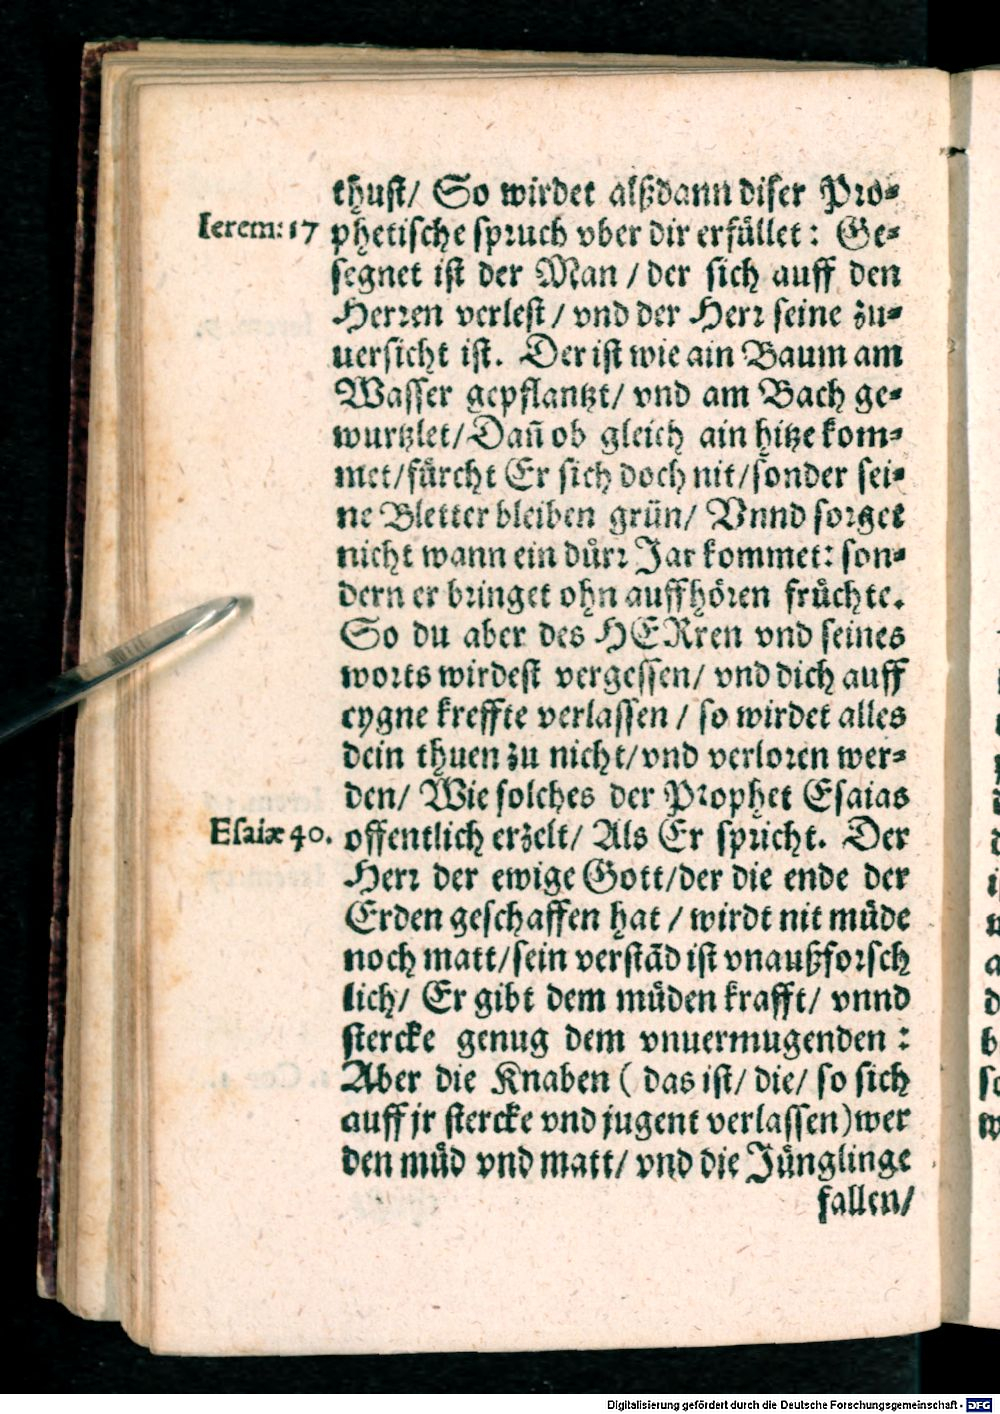 thust/ So wirdet alßdann diser Pro-
Ierem: 17 phetische spruch vber dir erfüllet: Ge-
segnet ist der Man / der sich auff den
Herren verlest/ vnd der Herr seine zu-
uersicht ist. Der ist wie ain Baum am
Wasser gepflantzt/ vnd am Bach ge-
wurtzlet/ Dañ ob gleich ain hitze kom-
met/ fürcht Er sich doch nit/ sonder sei-
ne Bletter bleiben grün/ Vnnd sorget
nicht wann ein dürr Jar kommet: son-
dern er bringet ohn auffhören früchte.
So du aber des HERren vnd seines
worts wirdest vergessen/ vnd dich auff
eygne kreffte verlassen / so wirdet alles
dein thuen zu nicht/ vnd verloren wer-
den/ Wie solches der Prophet Esaias
Esaiæ 40. offentlich erzelt/ Als Er spricht. Der
Herr der ewige Gott/ der die ende der
Erden geschaffen hat / wirdt nit müde
noch matt/ sein verstād ist vnaußforsch
lich/ Er gibt dem müden krafft/ vnnd
stercke genug dem vnuermugenden :
Aber die Knaben ( das ist/ die/ so sich
auff jr stercke vnd jugent verlassen) wer
den müd vnd matt/ vnd die Jünglinge
fallen/
Digitalisierung gefördert durch die Deutsche Forschungsgemeinschaft - DFG